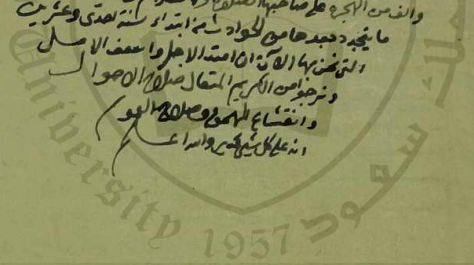 والف من الهجره على صاحبها الصلاة والسلام
ما يتجدد بعدها من الحوادث من ابتداء سنة احدى وعشرين
التي نحن بها الآن ان امتد الاجل واسعف الامل
ونرجوا من الكريم المتعال صلاح الاحوال
وانقشاع الهموم وصلاح العموم
انه على كل شيء قدير والله اعلم
University
1957
سعود